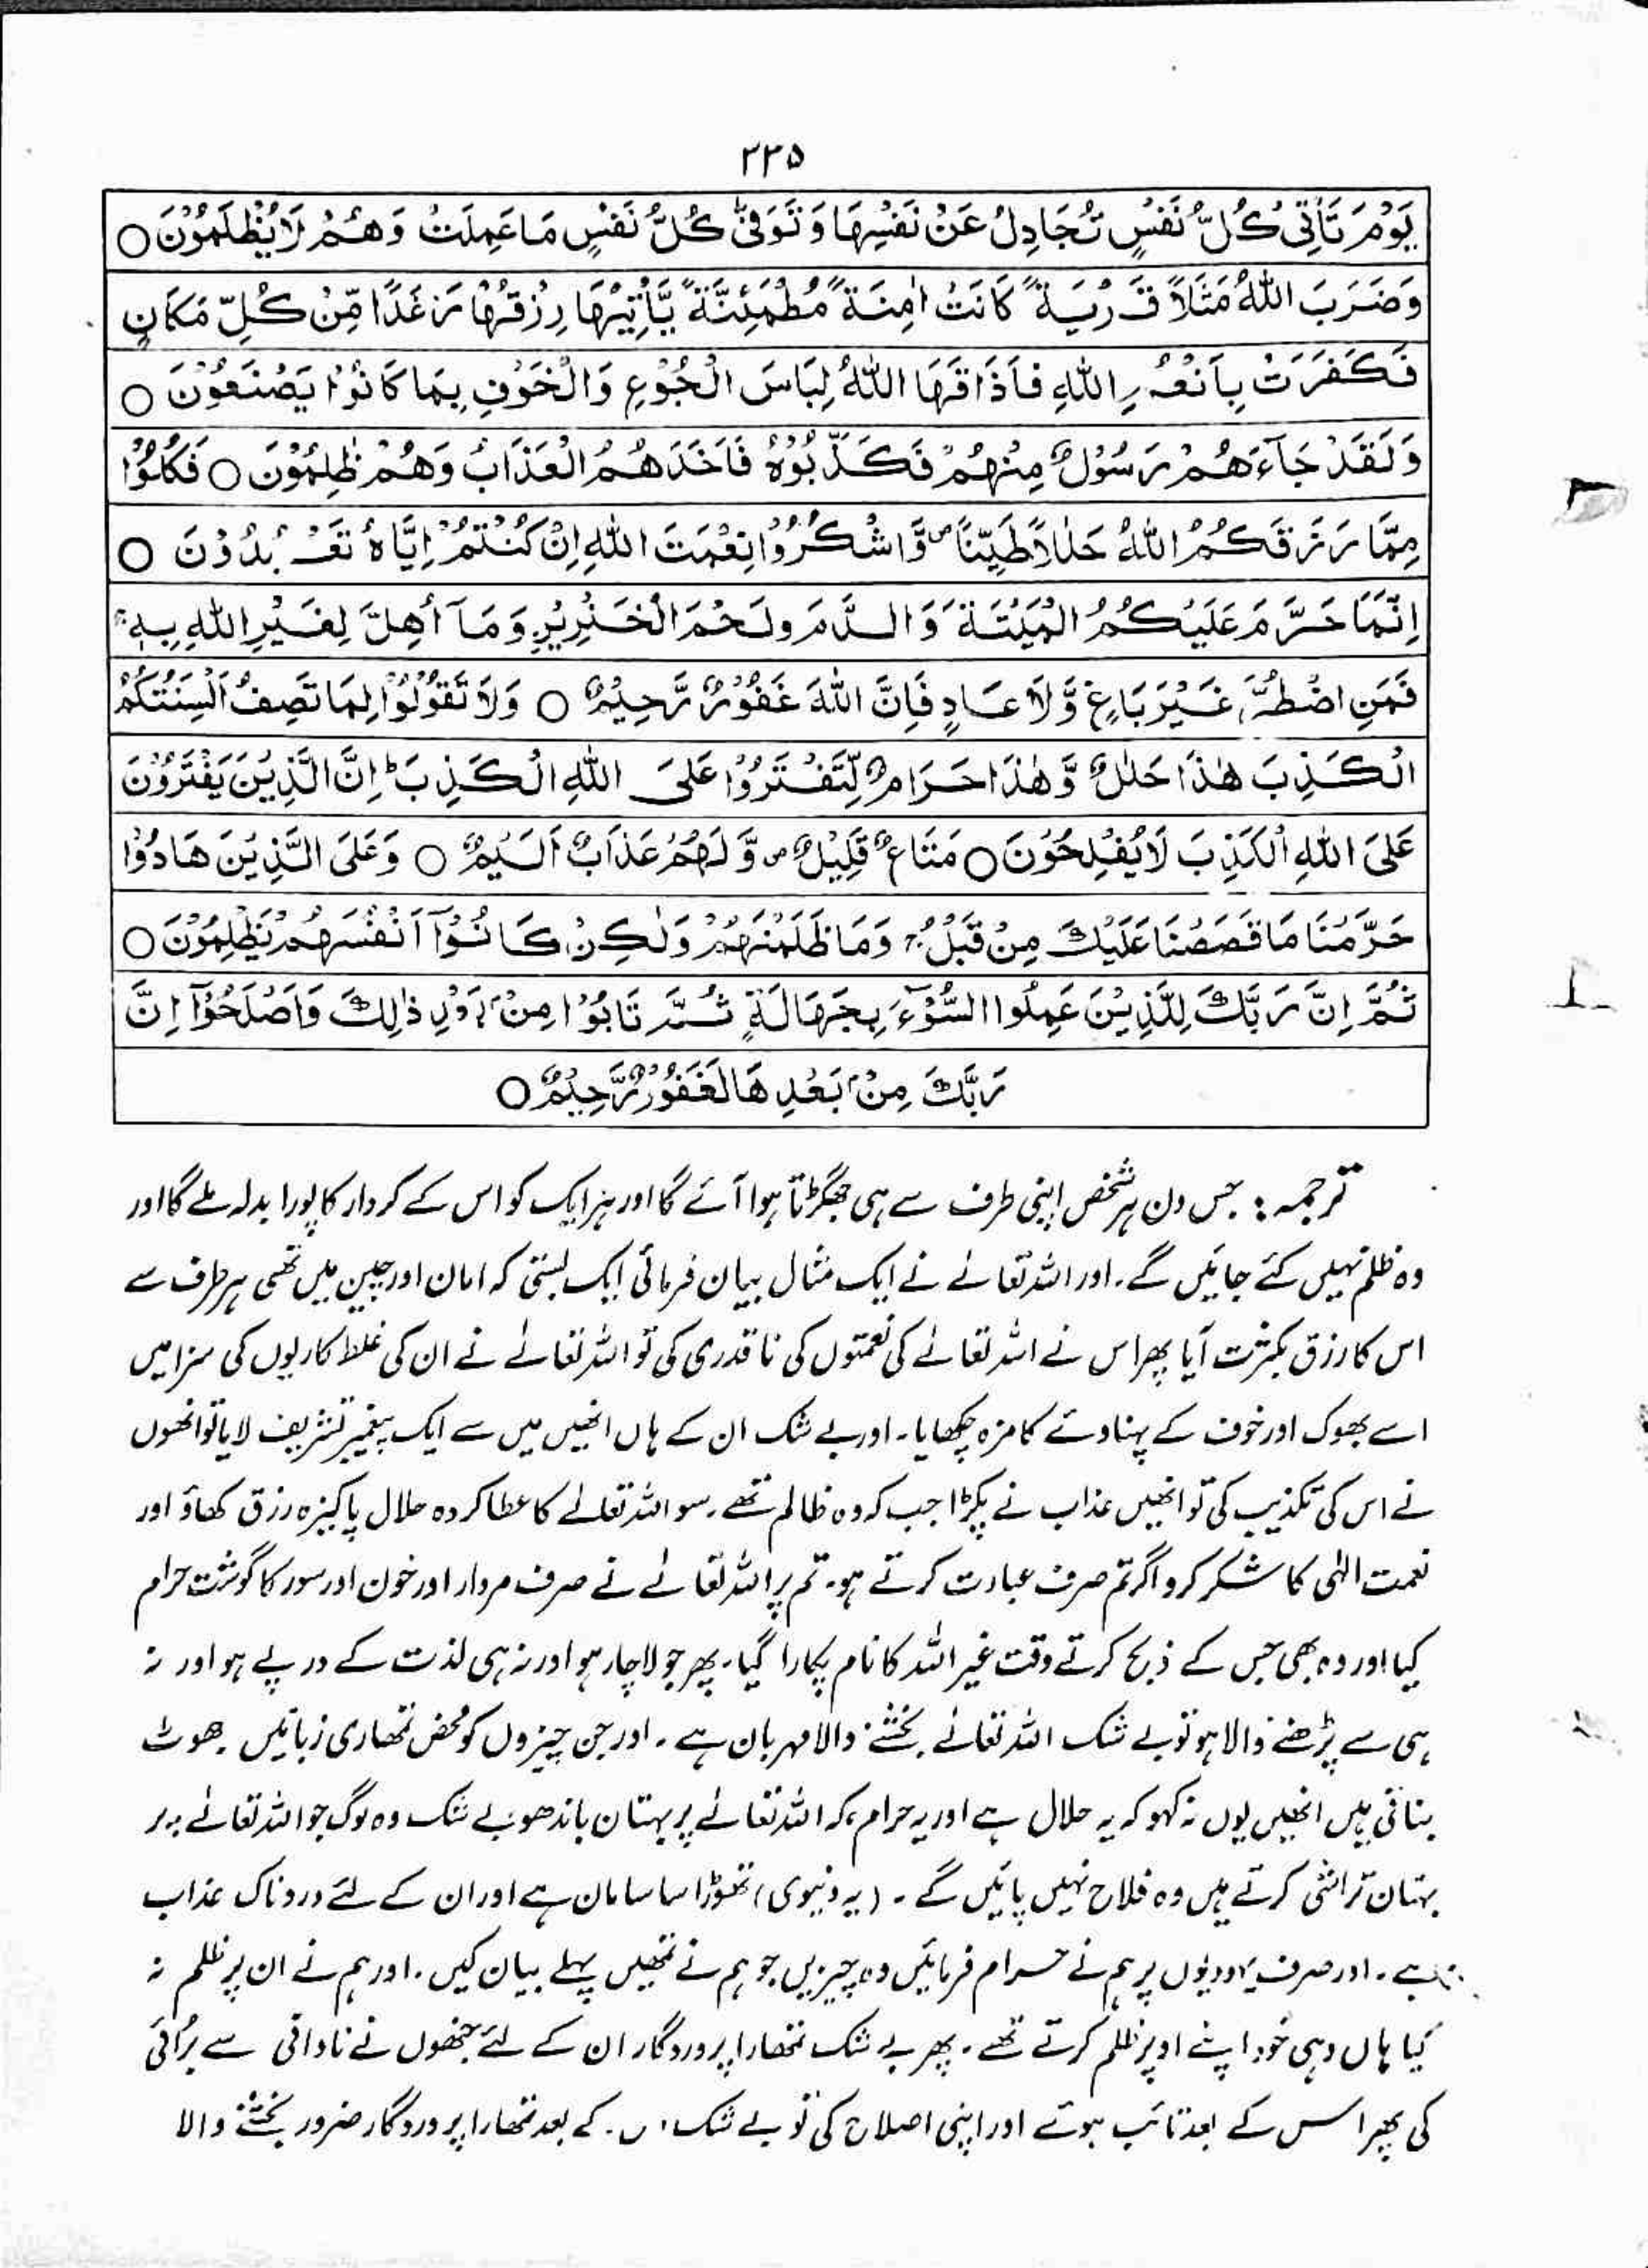 ۲۲۵
یَوْمَ تَاْتِیْ کُلُّ نَفْسٍ تُجَادِلُ عَنْ نَفْسِهَا وَ تُوَفّٰی کُلُّ نَفْسٍ مَا عَمِلَتْ وَهُمْ لَا یُظْلَمُوْنَ ○
وَضَرَبَ اللهُ مَثَلًا قَرْیَةً کَانَتْ اٰمِنَةً مُّطْمَئِنَّةً یَّاْتِیْهَا رِزْقُهَا رَغَدًا مِّنْ کُلِّ مَکَانٍ
فَکَفَرَتْ بِاَنْعُمِ اللهِ فَاَذَاقَهَا اللهُ لِبَاسَ الْجُوْعِ وَالْخَوْفِ بِمَا کَانُوْا یَصْنَعُوْنَ ○
وَلَقَدْ جَآءَهُمْ رَسُوْلٌ مِّنْهُمْ فَکَذَّبُوْهُ فَاَخَذَهُمُ الْعَذَابُ وَهُمْ ظٰلِمُوْنَ ○ فَکُلُوْا
مِمَّا رَزَقَکُمُ اللهُ حَلٰلًا طَیِّبًا ص وَّاشْکُرُوْا نِعْمَتَ اللهِ اِنْ کُنْتُمْ اِیَّاهُ تَعْبُدُوْنَ ○
اِنَّمَا حَرَّمَ عَلَیْکُمُ الْمَیْتَةَ وَالدَّمَ وَلَحْمَ الْخِنْزِیْرِ وَمَآ اُهِلَّ لِغَیْرِ اللهِ بِهٖ ج
فَمَنِ اضْطُرَّ غَیْرَ بَاغٍ وَّلَا عَادٍ فَاِنَّ اللهَ غَفُوْرٌ رَّحِیْمٌ ○ وَلَا تَقُوْلُوْا لِمَا تَصِفُ اَلْسِنَتُکُمُ
الْکَذِبَ هٰذَا حَلٰلٌ وَّهٰذَا حَرَامٌ لِّتَفْتَرُوْا عَلَی اللهِ الْکَذِبَ ط اِنَّ الَّذِیْنَ یَفْتَرُوْنَ
عَلَی اللهِ الْکَذِبَ لَا یُفْلِحُوْنَ ○ مَتَاعٌ قَلِیْلٌ ص وَّلَهُمْ عَذَابٌ اَلِیْمٌ ○ وَعَلَی الَّذِیْنَ هَادُوْا
حَرَّمْنَا مَا قَصَصْنَا عَلَیْکَ مِنْ قَبْلُ ج وَمَا ظَلَمْنٰهُمْ وَلٰکِنْ کَانُوْآ اَنْفُسَهُمْ یَظْلِمُوْنَ ○
ثُمَّ اِنَّ رَبَّکَ لِلَّذِیْنَ عَمِلُوا السُّوْٓءَ بِجَهَالَةٍ ثُمَّ تَابُوْا مِنْ بَعْدِ ذٰلِکَ وَاَصْلَحُوْآ اِنَّ
رَبَّکَ مِنْ بَعْدِهَا لَغَفُوْرٌ رَّحِیْمٌ ○
ترجمہ: جس دن ہر شخص اپنی طرف سے ہی جھگڑتا ہوا آئے گا اور ہر ایک کو اس کے کردار کا پورا بدلہ ملے گا اور
وہ ظلم نہیں کئے جائیں گے۔ اور اللہ تعالےٰ نے ایک مثال بیان فرمائی ایک بستی کہ امان اور چین میں تھی ہر طرف سے
اس کا رزق بکثرت آیا پھر اس نے اللہ تعالےٰ کی نعمتوں کی ناقدری کی تو اللہ تعالےٰ نے ان کی غلط کاریوں کی سزا میں
اسے بھوک اور خوف کے پہناوے کا مزہ چکھایا۔ اور بے شک ان کے ہاں انھیں میں سے ایک پیغمبر تشریف لایا تو انھوں
نے اس کی تکذیب کی تو انھیں عذاب نے پکڑا جب کہ وہ ظالم تھے۔ سو اللہ تعالےٰ کا عطا کردہ حلال پاکیزہ رزق کھاؤ اور
نعمت الٰہی کا شکر کرو اگر تم صرف عبادت کرتے ہو۔ تم پر اللہ تعالےٰ نے صرف مردار اور خون اور سور کا گوشت حرام
کیا اور وہ بھی جس کے ذبح کرتے وقت غیر اللہ کا نام پکارا گیا۔ پھر جو لاچار ہو اور نہ ہی لذت کے در پے ہو اور نہ
ہی سے بڑھنے والا ہو تو بے شک اللہ تعالےٰ بخشنے والا مہربان ہے۔ اور جن چیزوں کو محض تمھاری زبانیں جھوٹ
بناتی ہیں انھیں یوں نہ کہو کہ یہ حلال ہے اور یہ حرام، کہ اللہ تعالےٰ پر بہتان باندھو بے شک وہ لوگ جو اللہ تعالےٰ پر
بہتان تراشی کرتے ہیں وہ فلاح نہیں پائیں گے۔ (یہ دنیوی) تھوڑا سا سامان ہے اور ان کے لئے دردناک عذاب
ہے۔ اور صرف یہودیوں پر ہم نے حرام فرمائیں وہ چیزیں جو ہم نے تمھیں پہلے بیان کیں۔ اور ہم نے ان پر ظلم نہ
کیا ہاں وہی خود اپنے اوپر ظلم کرتے تھے۔ پھر بے شک تمھارا پروردگار ان کے لئے جنھوں نے نادانی سے برائی
کی پھر اس کے بعد تائب ہوئے اور اپنی اصلاح کی تو بے شک اس کے بعد تمھارا پروردگار ضرور بخشنے والا